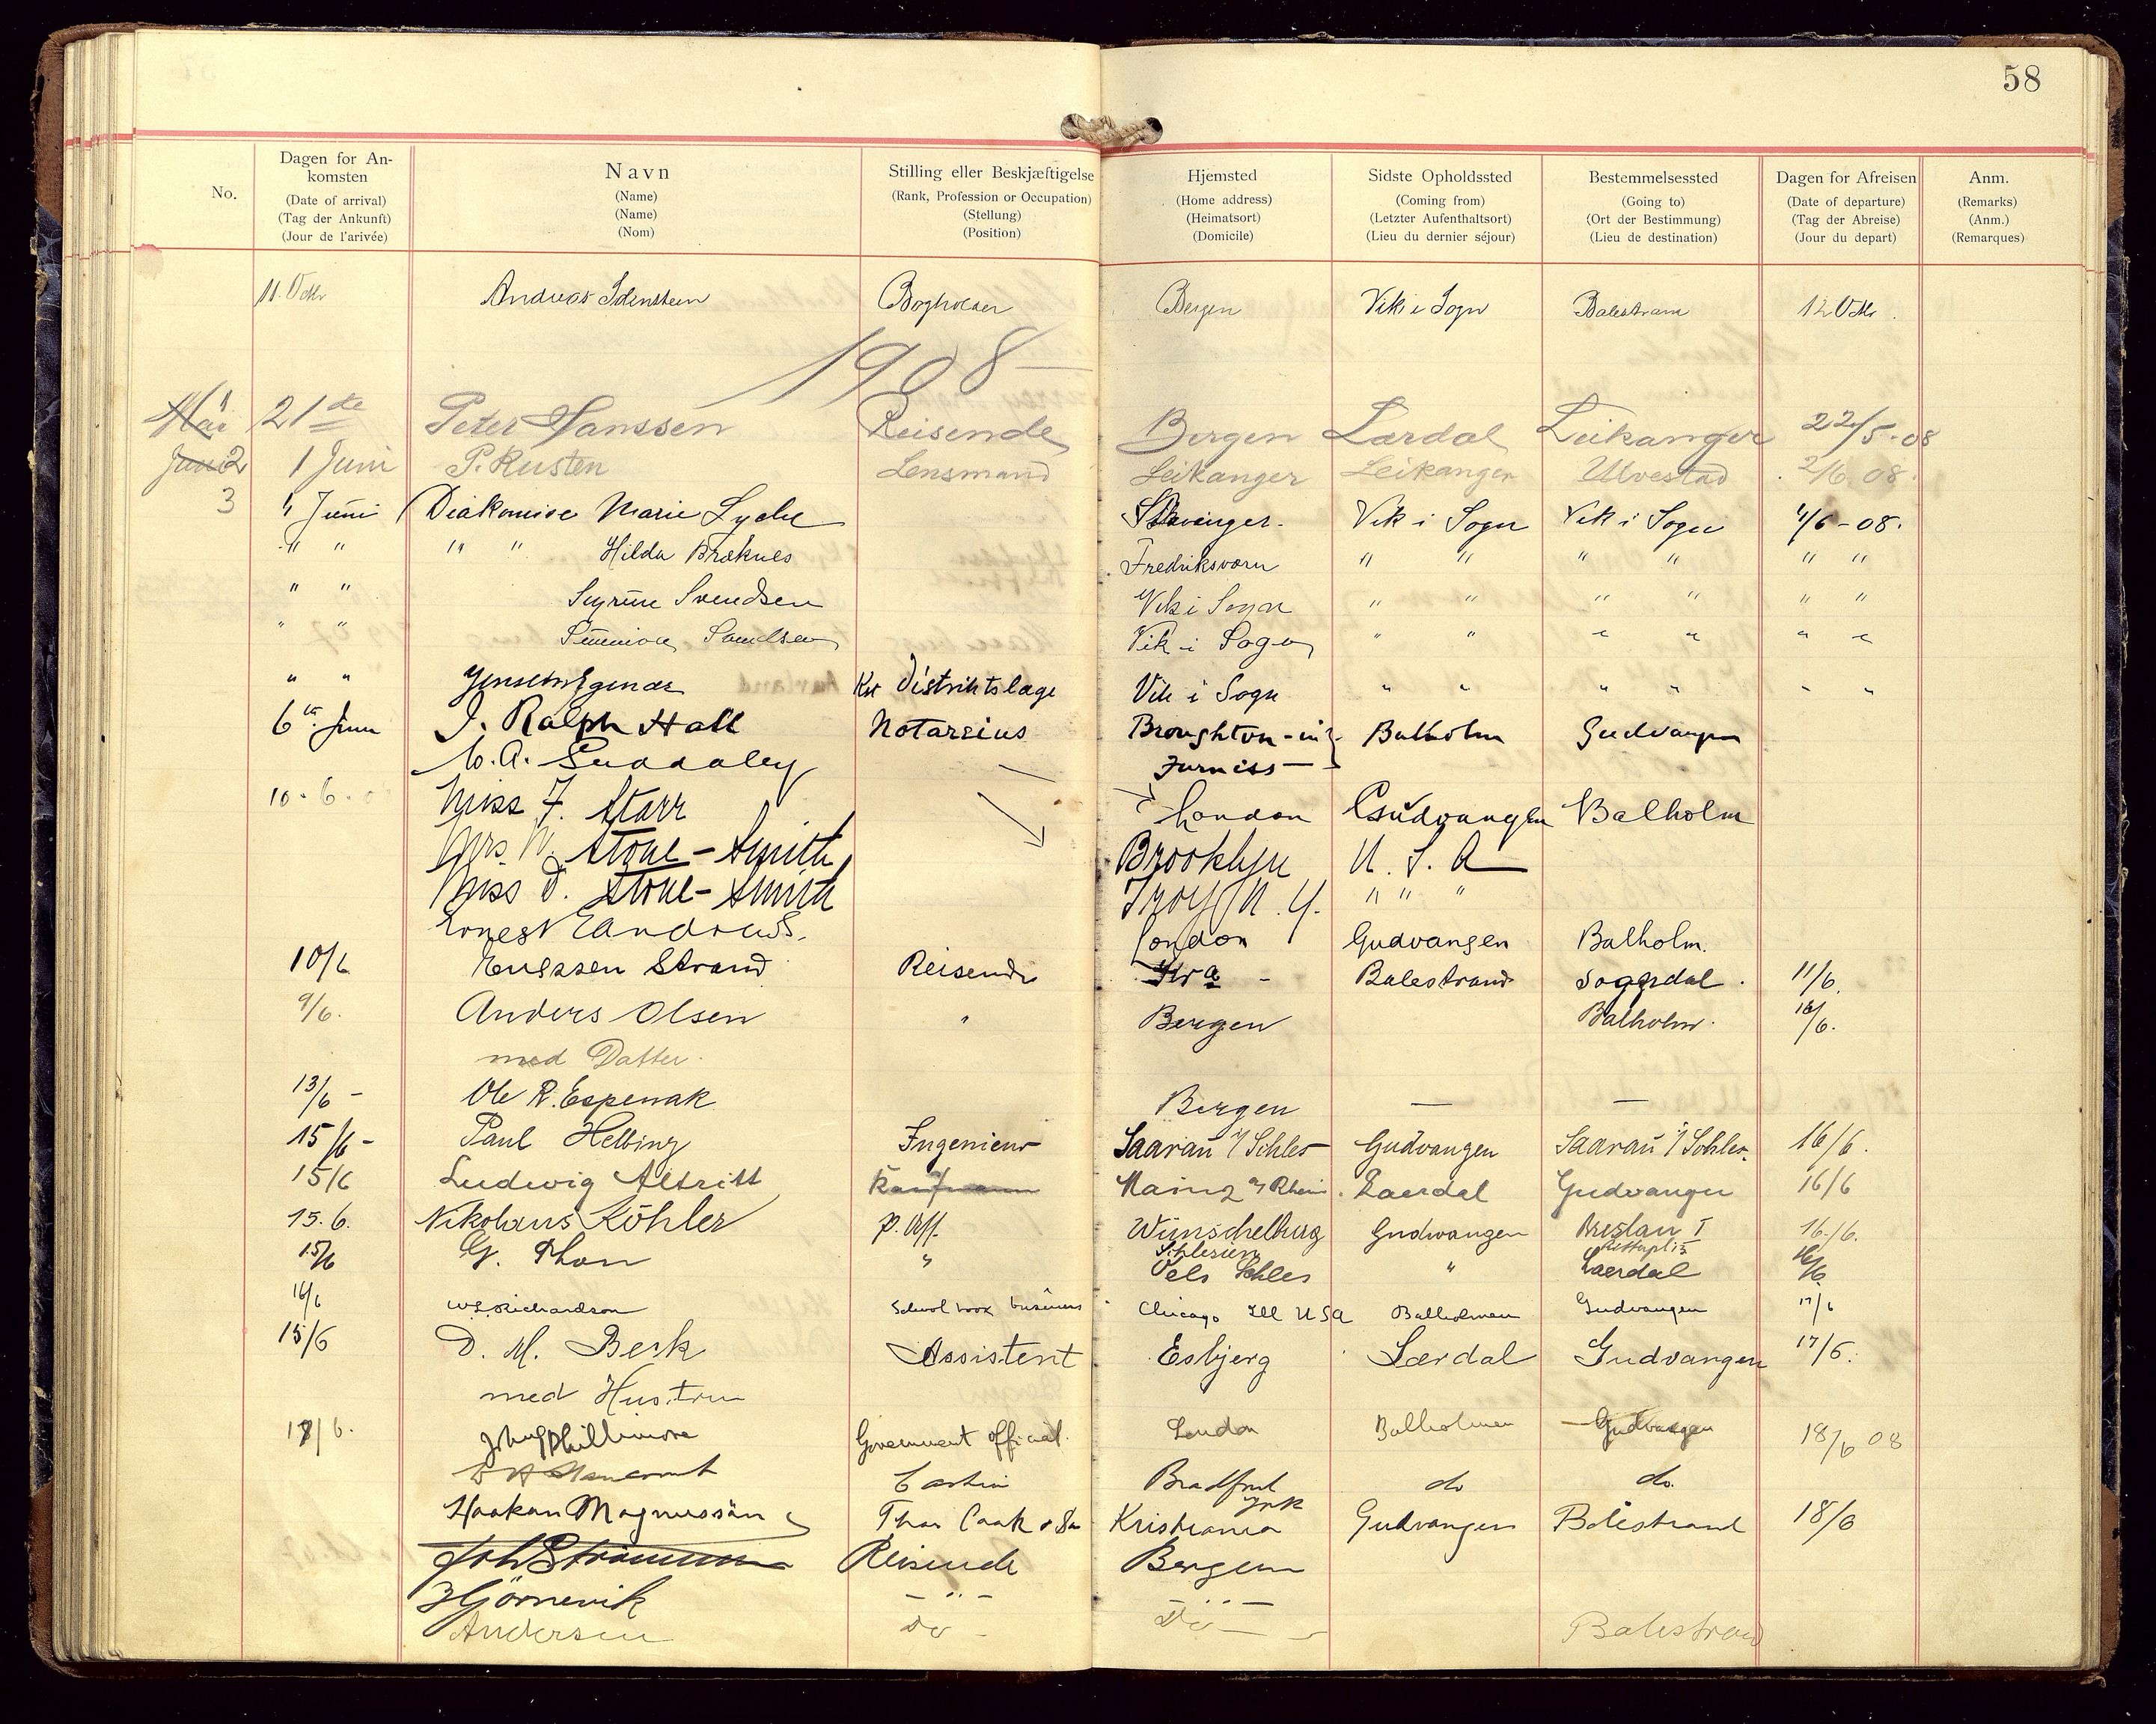 58
No. Dagen for An-komsten Navn Stilling eller Beskjæftigelse Hjemsted Sidste Opholdssted Bestemmelsessted Dagen for Afreisen Anm.
(Date of arrival) (Name) (Rank, Profession or Occupation) (Home address) (Coming from) (Going to) (Date of departure) (Remarks)
(Tag der Ankunft) (Name) (Stellung) (Heimatsort) (Letzter Aufenthaltsort) (Ort der Bestimmung) (Tag der Abreise) (Anm.)
(Jour de l'arivée) (Nom) (Position) (Domicile) (Lieu du dernier séjour) (Lieu de destination) (Jour du depart) (Remarques)
11. Oktr Andreas Bogholder Bergen Vik i Sogn Balestrand 12 Oktr.
1908
Mai 1 21de Peter Hanssen Reisende Bergen Lærdal Leikanger 22/5-08
Juni 2 1 Juni P. Rusten Lensmand Leikanger Leikanger Ulvestad 2/6 08.
3 " Juni Diakonisse Marie Lyche Stavanger. Vik i Sogn Vik i Sogn 4/6-08.
" " " " Hilda Fredriksværn " " " " " "
" " Svendsen Vik i Sogn " " " " " "
" " Vik i Sogn " " " " " "
" " Distriktslæge Vik i Sogn " " " " " "
6th June J. Ralph Hall Notarius Broughton-in Balholm Gudvangen
Furness
10.6.0 Miss F. Starr London Gudvangen Balholm
Mrs. W. Stone-Smith Brooklyn U.S.A
Miss D. Stone-Smith Troy N.Y. " " "
Ernest Andrews. London Gudvangen Balholm.
10/6 Strand Reisende Balestrand Sogndal. 11/6.
9/6. Anders Olsen " Bergen Balholm. 10/6.
med Datter.
13/6 - Ole R. Espenak Bergen — —
15/6 - Paul Helbing Ingenieur Saarau i/Schles Gudvangen Saarau i/Schles. 16/6.
15/6 Ludwig Altritt Kaufmann Mainz a/Rhein. Laerdal Gudvangen 16/6
15.6. Nikolaus Köhler p. Off. Wünschelburg Gudvangen Breslau I 16./6.
Schlesien
15/6 G. Thon " Oels Schles " Laerdal 16/6
16/6 W S Richardson School book business Chicago Ill USA Balholmen Gudvangen 17/6
15/6 D. M. Besk Assistent Esbjerg Lærdal Gudvangen 17/6.
med Hustru
17/6. John Phillimore Government official. London Balholmen Gudvangen 18/6 08
Bradford do do.
York
Haakan Magnussän Thos Cook & Son Kristiania Gudvangen Balestrand 18/6
Joh Strømmen Reisende Bergen
Hjørnevik — " — — " —
Andersen Do - Do — Balestrand